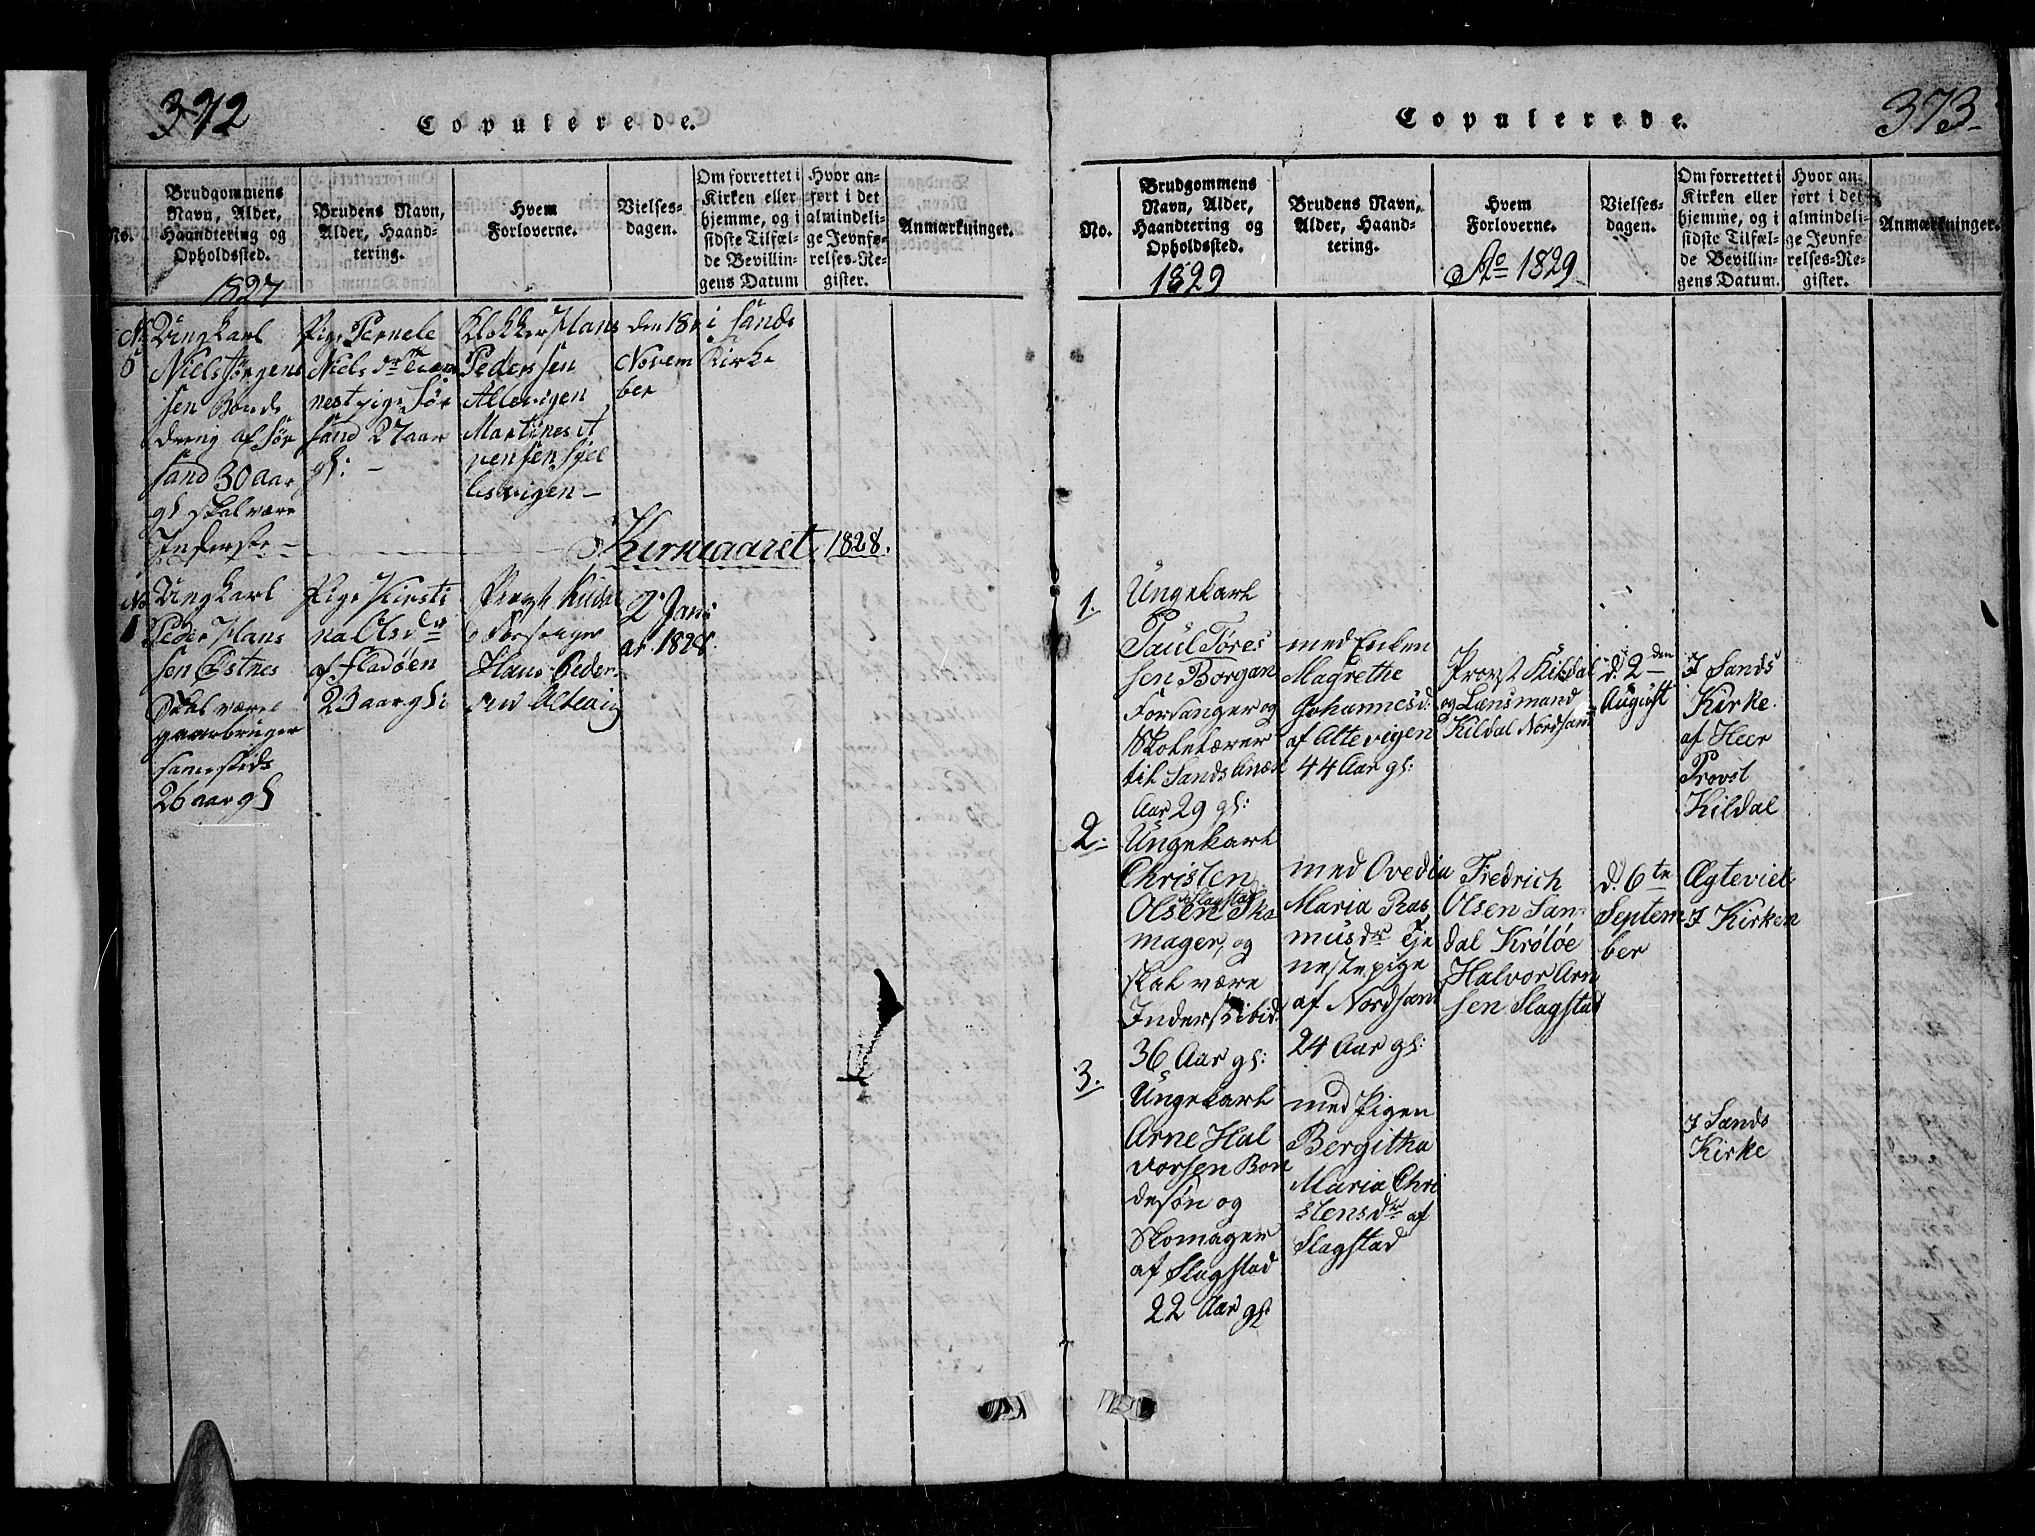 372
Copulerede.
No.
Brudgommens
Navn, Alder,
Haandtering og
Opholdssted.
1827
Brudens Navn,
Alder, Haand-
tering.
Hvem
Forloverne.
Vielses-
dagen.
Om forrettet i
Kirken eller
hjemme, og i
sidste Tilfæl-
de Bevillin-
gens Datum
Hvor an-
ført i det
almindeli-
ge Jevnfø-
relses-Re-
gister.
Anmærkninger.
No
6
Ungkarl
Niels Jørgens
sen Bonde
dreng af Sør
sand 30 aar
gl skal være
Inderste
Pige Pernele
Niels dr
nestpige Sør
sand 27 aar
gl:
Klokker Hans
Pedersen
Altevigen
Martines
pensen
lesvigen
den 18
Novem
ber
i Sands
Kirke
Kirkeaaret 1828.
No
1
Ungkarl
Peder Hans
sen Østnes
skal være
gaarbruger
samesteds
26 aar gl
Pige Kirsti
na Olsdtr
af Fladøen
23 aar gl:
Provst Kildal
Forsanger
Hans Peder
sen Altevig
2 Janu
ar 1828.
373
Copulerede.
No.
Brudgommens
Navn, Alder,
Haandtering og
Opholdssted.
1829
Brudens Navn,
Alder, Haand-
tering.
Hvem
Forloverne.
Ao 1829
Vielses-
dagen.
Om forrettet i
Kirken eller
hjemme, og i
sidste Tilfæl-
de Bevillin-
gens Datum.
Hvor an-
ført i det
almindeli-
ge Jevnfø-
relses-Re-
gister.
Anmærkninger.
1.
Ungekarl
Paul Tøres
sen Borgan
Forsanger og
Skolelærer
til Sands Anex
Aar 29 gl:
med Enken
Magrethe
Johannesd.
af Altevigen
44 Aar gl:
Provst Kildal
og Lænsmand
Kildal Nordsand
d. 2den
August
I Sands
Kirke.
af Heer
Provst
Kildal
2.
Ungekarl
Christen
Slagstad
Olsen Sko
mager, og
skal være
Inderst ibid.
36 Aar gl:
med Ovedia
Maria Ras
musdr Tje
nestepige
af Nordsand
24 Aar gl:
Fredrich
Olsen San
dal Krøtøe
Halvor Arn
sen Slagstad
d. 6te
Septem
ber
Ægteviet
I Kirken
3.
Ungekarl
Arne Hal
vorsen Bon
desøn og
Skomager
af Slagstad
22 Aar gl
med Pigen
Bergitha
Maria Chri
stensdr af
Slagstad
I Sands
Kirke